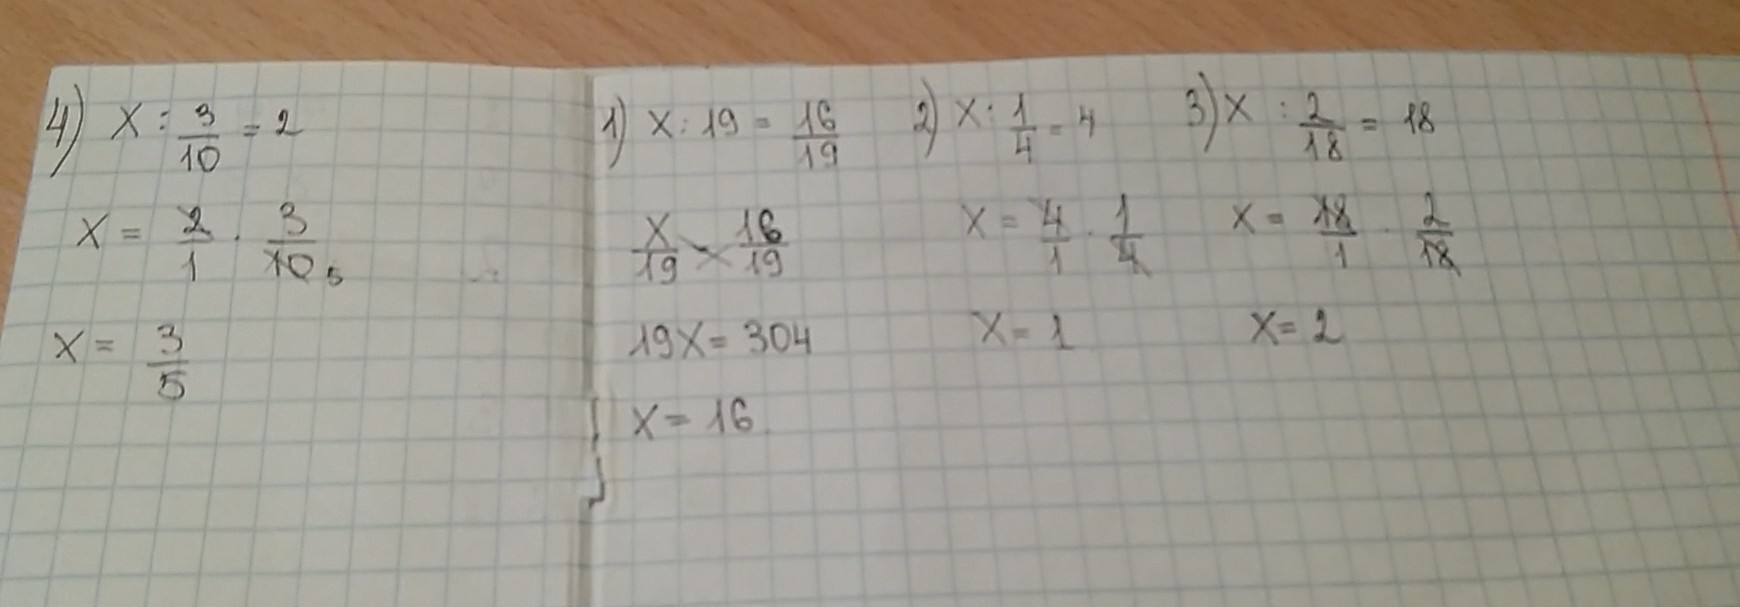 4) x : 3/10 = 2
x = 2/1 · 3/10 5
x = 3/5
1) x : 19 = 16/19
x/19 = 16/19
19x = 304
x = 16
2) x : 1/4 = 4
x = 4/1 · 1/4
x = 1
3) x : 2/18 = 18
x = 18/1 · 2/18
x = 2